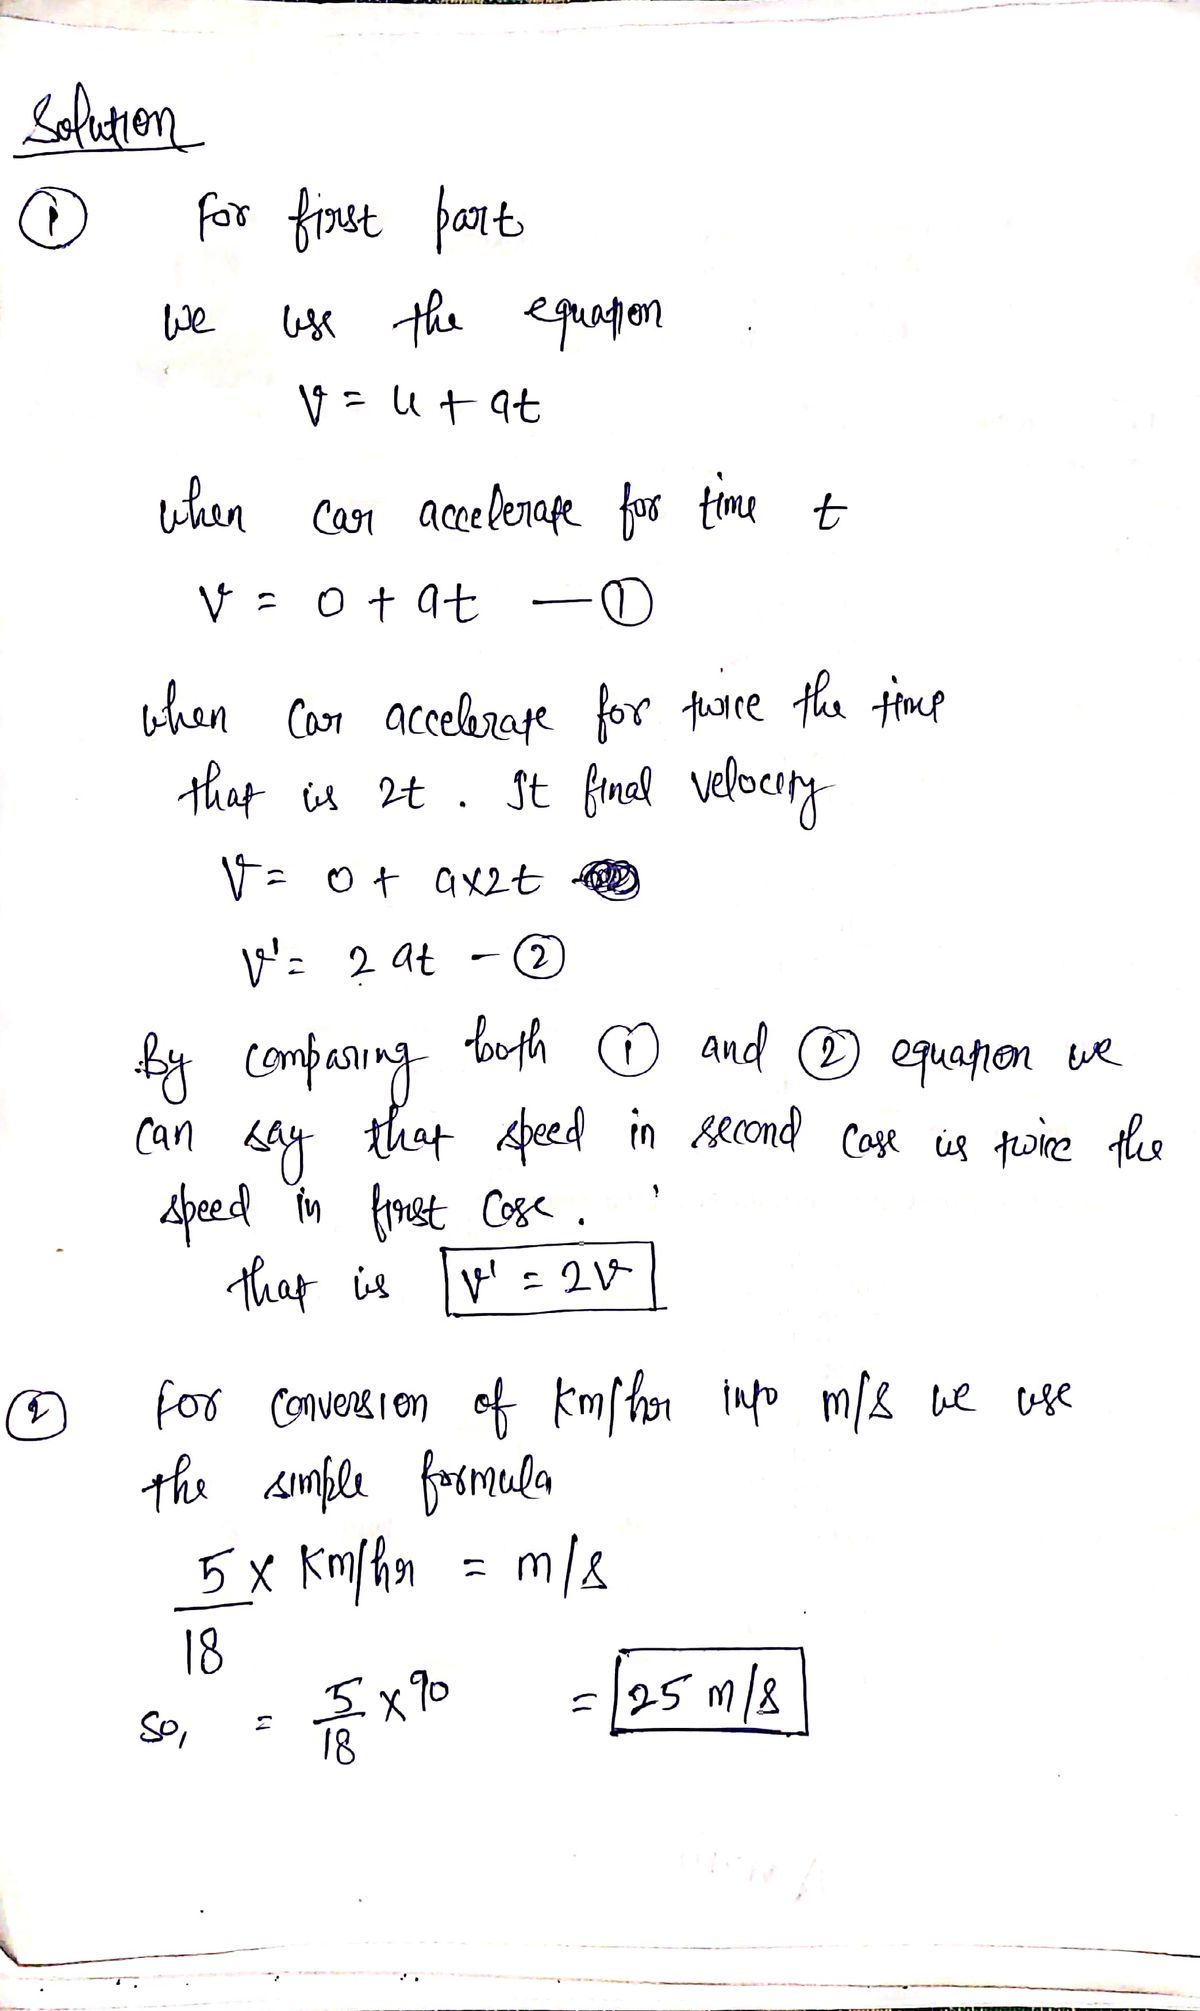 Solution
① For first part
we use the equation
v = u + at
when car accelerate for time t
v = 0 + at — ①
when car accelerate for twice the time
that is 2t . It final velocity
v = 0 + a×2t
v' = 2 at - ②
By comparing both ① and ② equation we
can say that speed in second case is twice the
speed in first case.
that is v' = 2v
② for conversion of km/hr into m/s we use
the simple formula
5/18 × km/hr = m/s
so, = 5/18 × 90 = 25 m/s